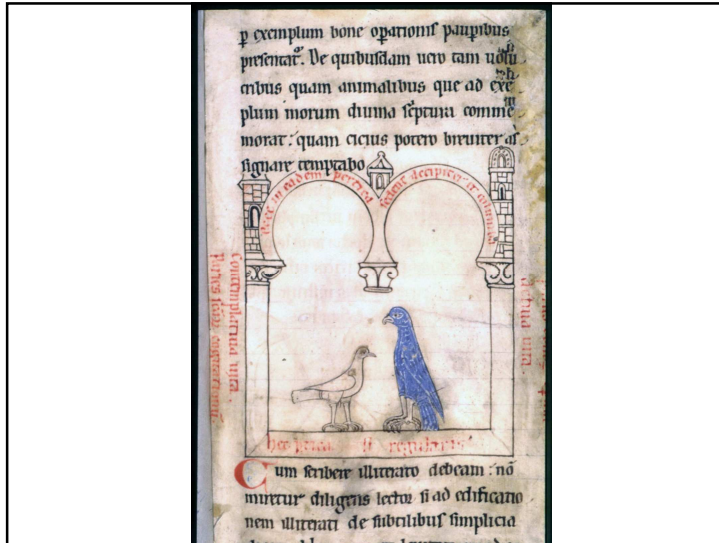 p exemplum bone opationis paupibus
presentat. De quibusdam uero tam uolu
cribus quam animalibus que ad exe
plum morum diuina scptura comme
morat: quam cicius potero breuiter as
signare temptabo
Ecce in eadem pertica
sedens accipiter et columba
Contemplatiua uita.
actiua uita.
hec pertica regularis
Cum scribere illiterato debeam: nō
miretur diligens lector si ad edificatio
nem illiterati de subtilibus simplicia